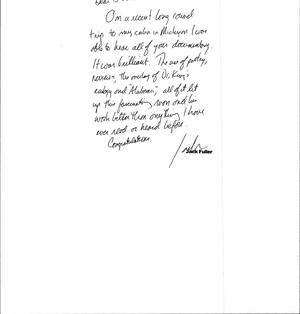 Dear
On a recent long round
trip to my cabin in Michigan I was
able to hear all of your documentary.
It was brilliant. The use of poetry,
reviews, the overlay of Dr. King's
eulogy and "Alabama," all of it lit
up this fascinating man and his
work better than anything I have
ever read or heard before.
Congratulations.
Jack Fuller